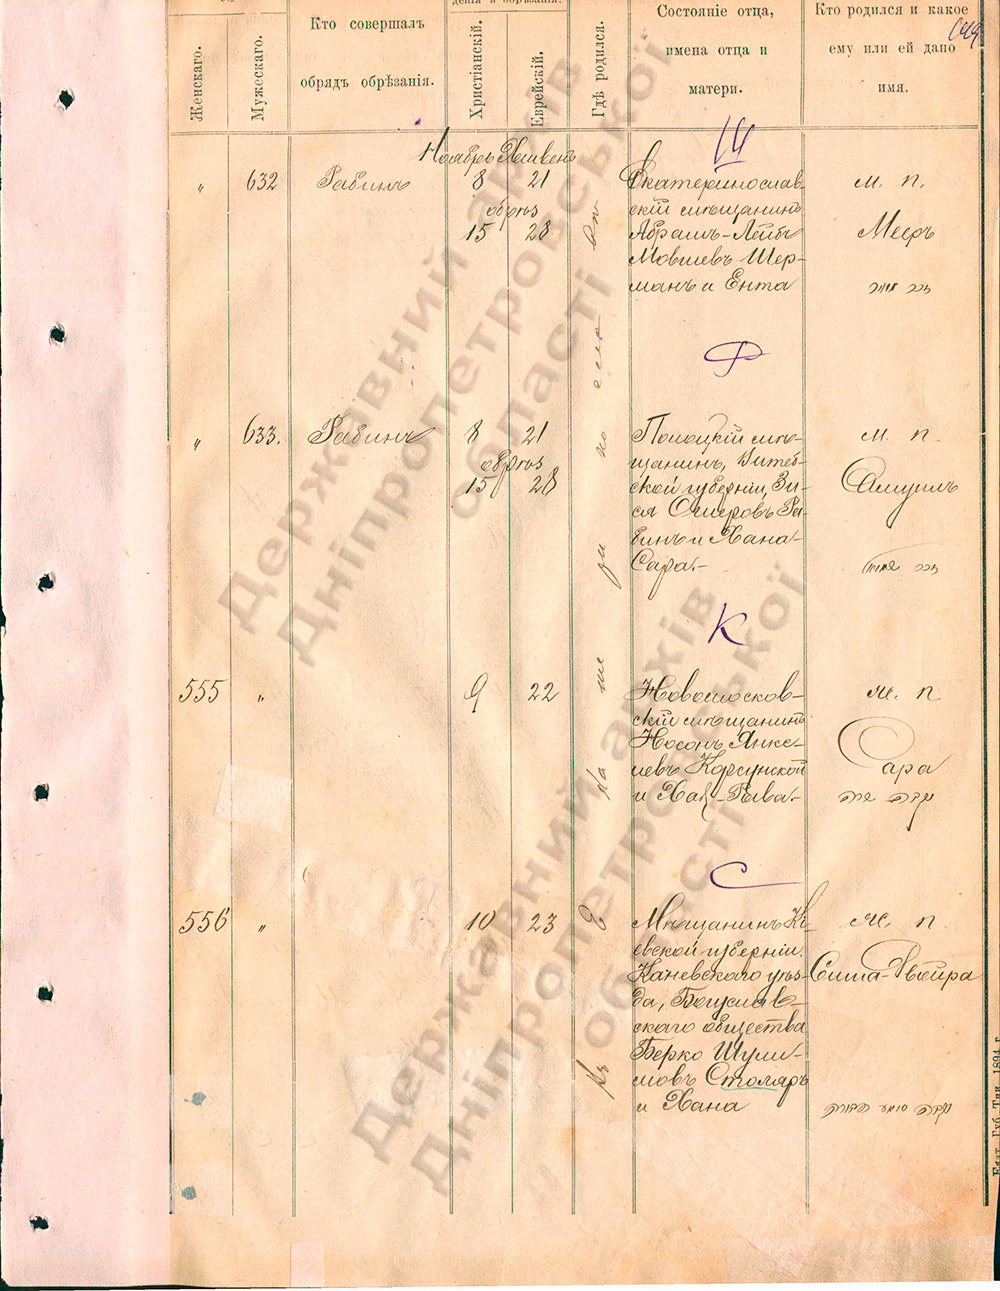 Женскаго.
Мужескаго.
Кто совершалъ
обрядъ обрѣзанія.
денія и обрѣзанія.
Христіанскій.
Еврейскій.
Гдѣ родился.
Состояніе отца,
имена отца и
матери.
Кто родился и какое
ему или ей дано
имя.
Ноябрь Хешвенъ
Ш
„ 632 Рабинъ 8 21
обрѣз
15 28
Екатеринослав-
скій мѣщанинъ
Абрамъ-Лейбъ
Мовшевъ Шер-
манъ и Ента
м. п.
Мееръ
Ф
„ 633. Рабинъ 8 21
обрѣз
15 28
Полоцкій мѣ-
щанинъ, Витеб-
ской губерніи, Зи-
ся Омеровъ Ра-
бинъ и Хана-
Сара.-
м. п.
Самуилъ
К
555 „ 9 22
Новомосков-
скій мѣщанинъ
Носонъ Янке-
левъ Корсунской
и Хая-Рива.-
ж. п.
Сара
С
556 „ 10 23
Мѣщанинъ Кі-
евской губерніи.
Каневскаго уѣз-
да, Богуслав-
скаго общества
Берко Шули-
мовъ Столяръ
и Хана
ж. п.
Сима-Двейра
Екат. Губ. Тип. 1894 г.
Державний архів
Дніпропетровської
області
Державний архів
Дніпропетровської
області